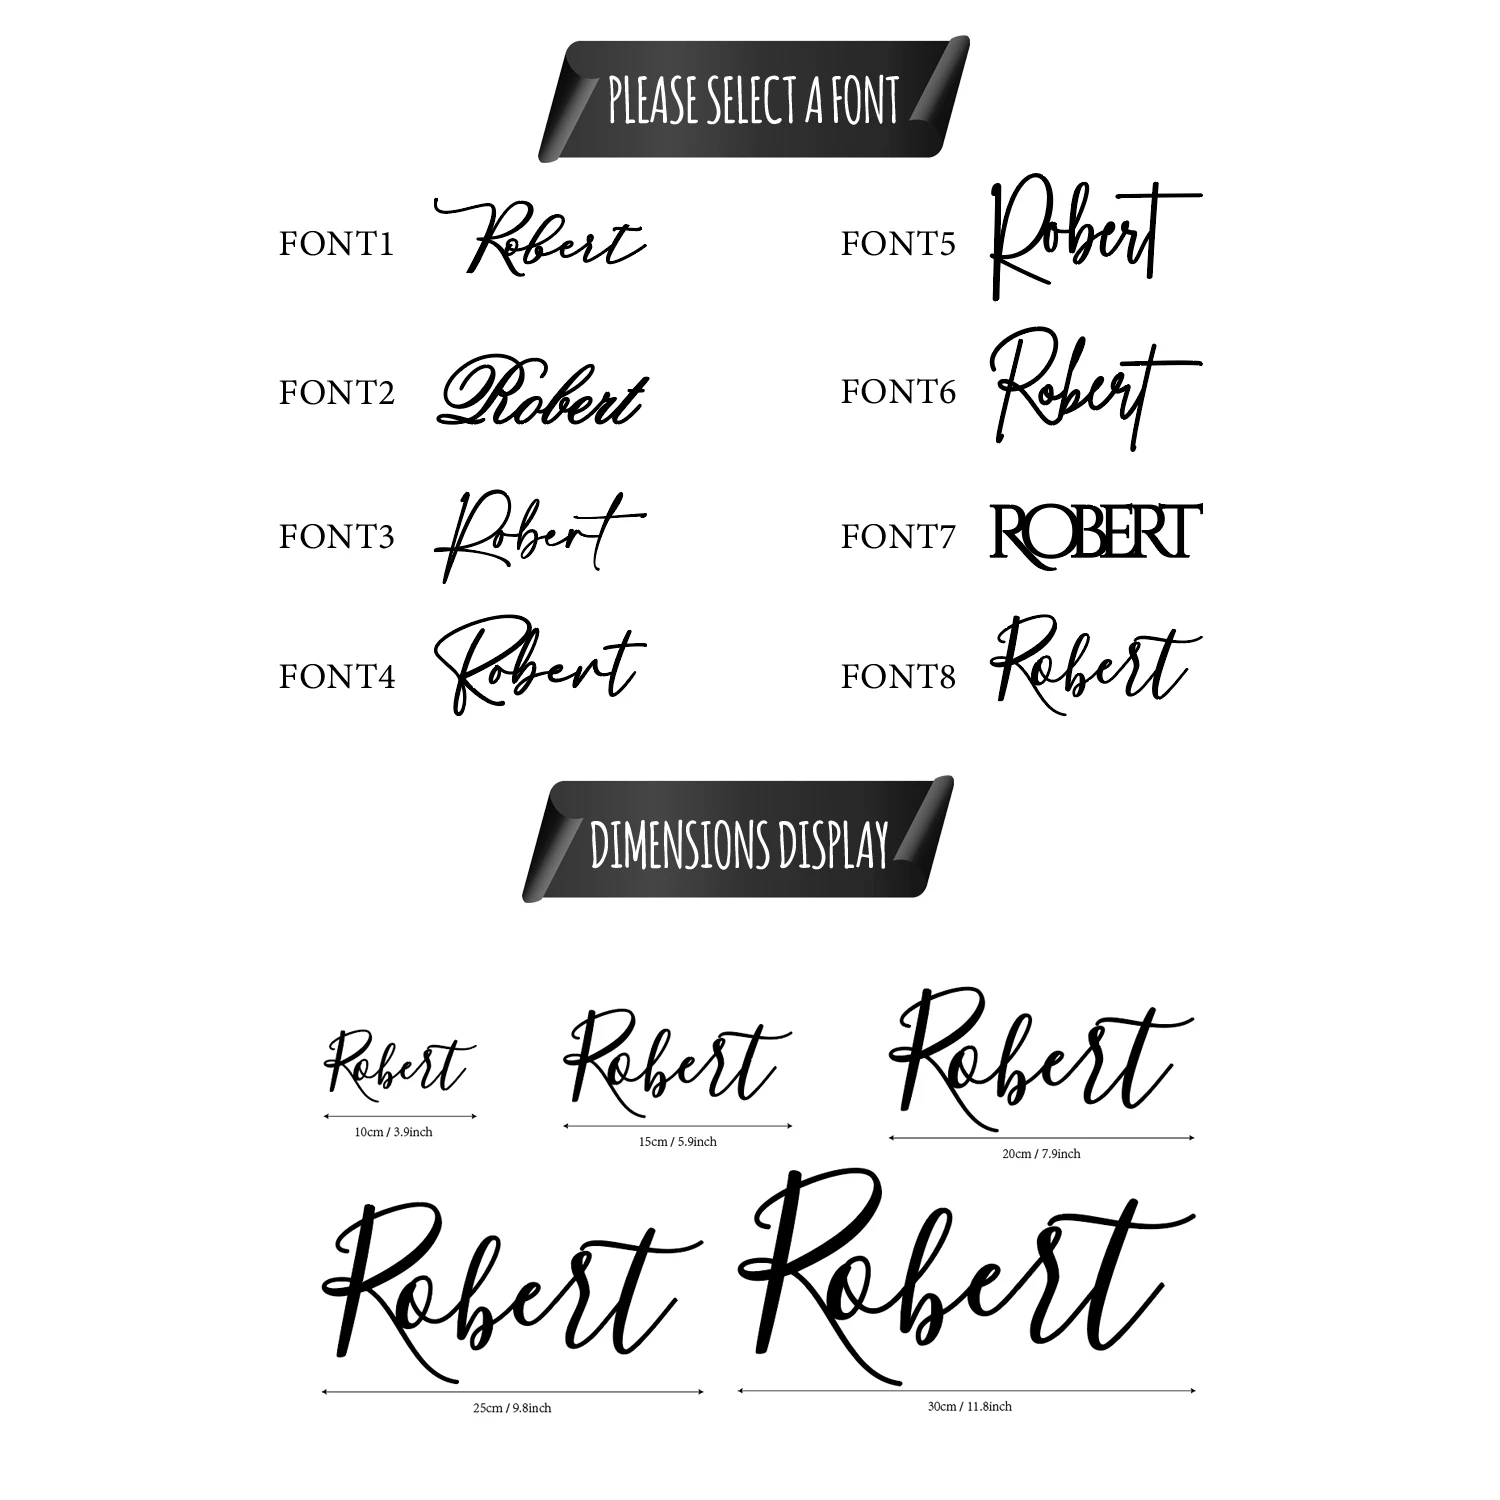 PLEASE SELECT A FONT
FONT1 Robert
FONT5 Robert
FONT2 Robert
FONT6 Robert
FONT3 Robert
FONT7 ROBERT
FONT4 Robert
FONT8 Robert
DIMENSIONS DISPLAY
Robert
10cm / 3.9inch
Robert
15cm / 5.9inch
Robert
20cm / 7.9inch
Robert
25cm / 9.8inch
Robert
30cm / 11.8inch